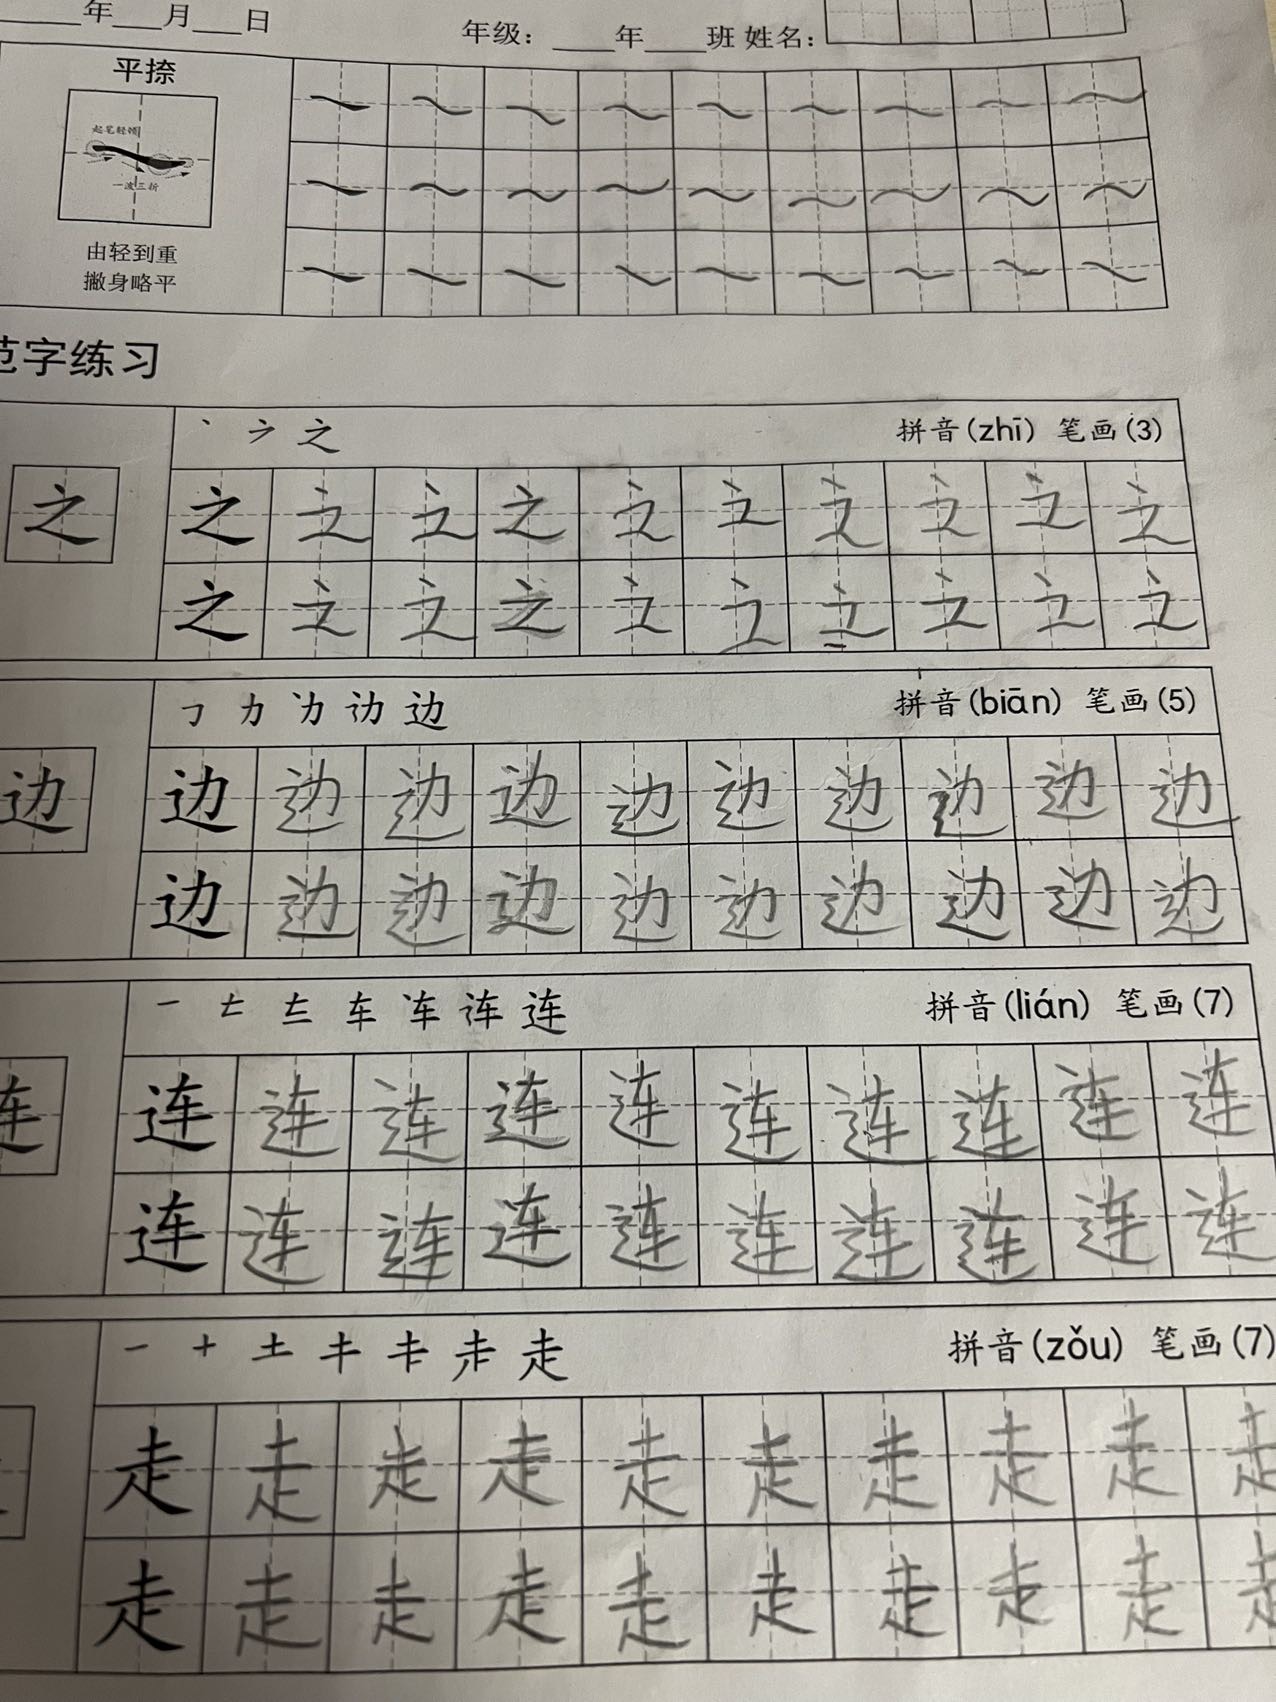 年 月 日 年级： 年 班 姓名：
平捺
起笔轻顿
一波三折
由轻到重
撇身略平
范字练习
之 拼音(zhī) 笔画(3)
之 之 之 之 之 之 之 之 之 之 之
之 之 之 之 之 之 之 之 之 之
边 拼音(biān) 笔画(5)
边 边 边 边 边 边 边 边 边 边 边
边 边 边 边 边 边 边 边 边 边
连 拼音(lián) 笔画(7)
连 连 连 连 连 连 连 连 连 连 连
连 连 连 连 连 连 连 连 连 连
走 拼音(zǒu) 笔画(7)
走 走 走 走 走 走 走 走 走 走
走 走 走 走 走 走 走 走 走 走